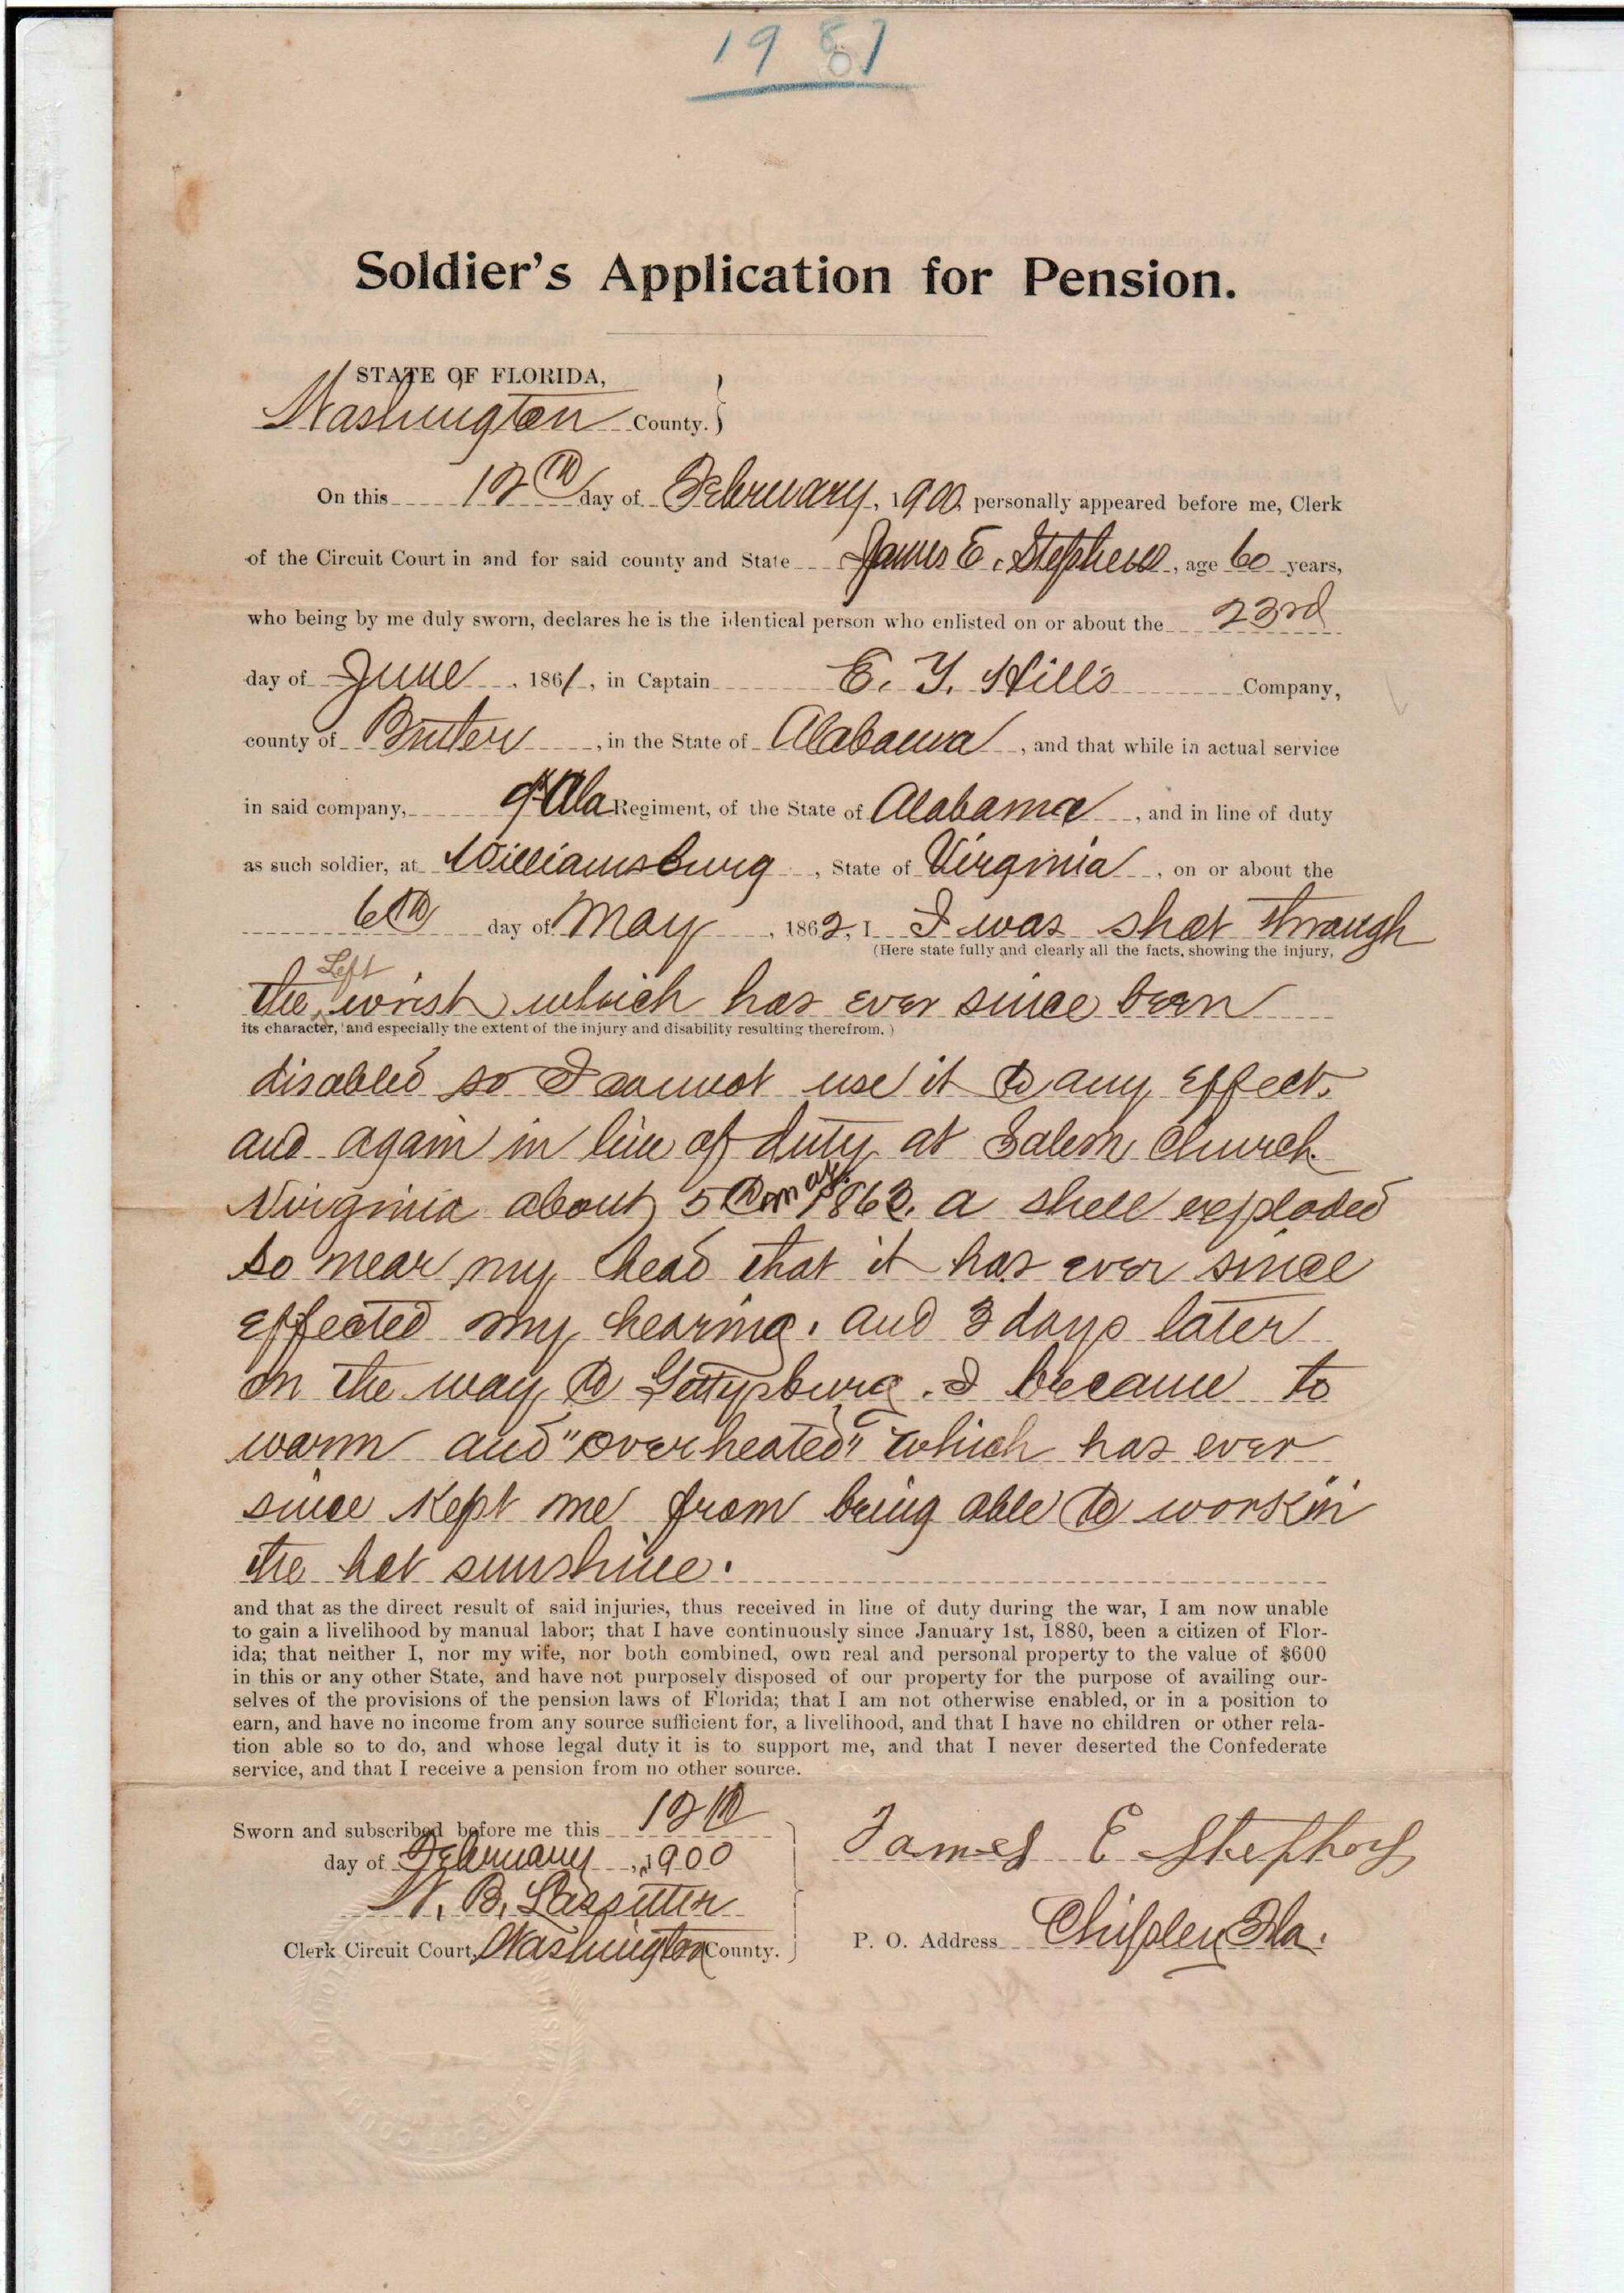 1987
Soldier's Application for Pension.
STATE OF FLORIDA,
Washington County. }
On this 12th day of February, 1900, personally appeared before me, Clerk
of the Circuit Court in and for said county and State James E. Stephens, age 60 years,
who being by me duly sworn, declares he is the identical person who enlisted on or about the 23rd
day of June, 1861, in Captain E. Y. Hill's Company,
county of Butler, in the State of Alabama, and that while in actual service
in said company, 9th Ala Regiment, of the State of Alabama, and in line of duty
as such soldier, at Williamsburg, State of Virginia, on or about the
6th day of May, 1862, I I was shot through
(Here state fully and clearly all the facts, showing the injury,
the Left wrist which has ever since been
its character, and especially the extent of the injury and disability resulting therefrom.)
disabled so I cannot use it to any effect.
and again in line of duty at Salem Church
Virginia about 5th May 1863. a shell exploded
so near my head that it has ever since
effected my hearing. and 3 days later
on the way to Gettysburg. I became to
warm and "overheated" which has ever
since Kept me from being able to work in
the hot sunshine.
and that as the direct result of said injuries, thus received in line of duty during the war, I am now unable
to gain a livelihood by manual labor; that I have continuously since January 1st, 1880, been a citizen of Flor-
ida; that neither I, nor my wife, nor both combined, own real and personal property to the value of $600
in this or any other State, and have not purposely disposed of our property for the purpose of availing our-
selves of the provisions of the pension laws of Florida; that I am not otherwise enabled, or in a position to
earn, and have no income from any source sufficient for, a livelihood, and that I have no children or other rela-
tion able so to do, and whose legal duty it is to support me, and that I never deserted the Confederate
service, and that I receive a pension from no other source.
Sworn and subscribed before me this 12th
day of February, 1900
W. B. Lassitter
Clerk Circuit Court, Washington County.
James E Stephens
P. O. Address Chipley Fla.